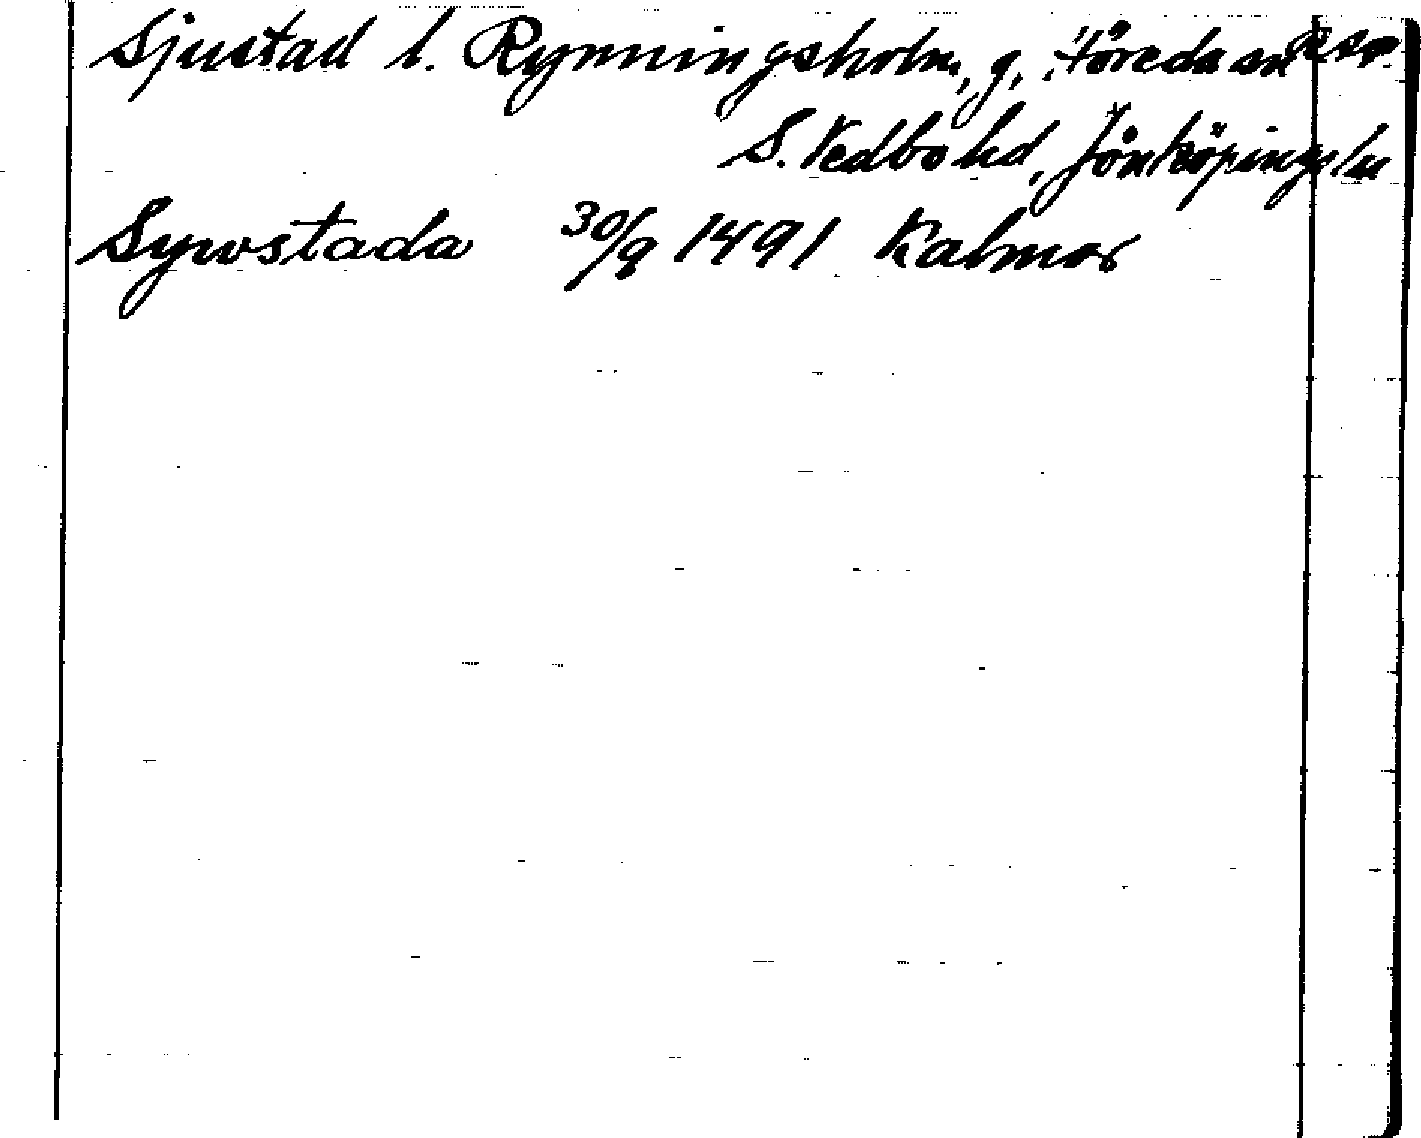 Sjustad l. Rynningsholm, g, Höreda sn
S. Vedbo hd, Jönköpings län
Sywstada 30/9 1491 Kalmar